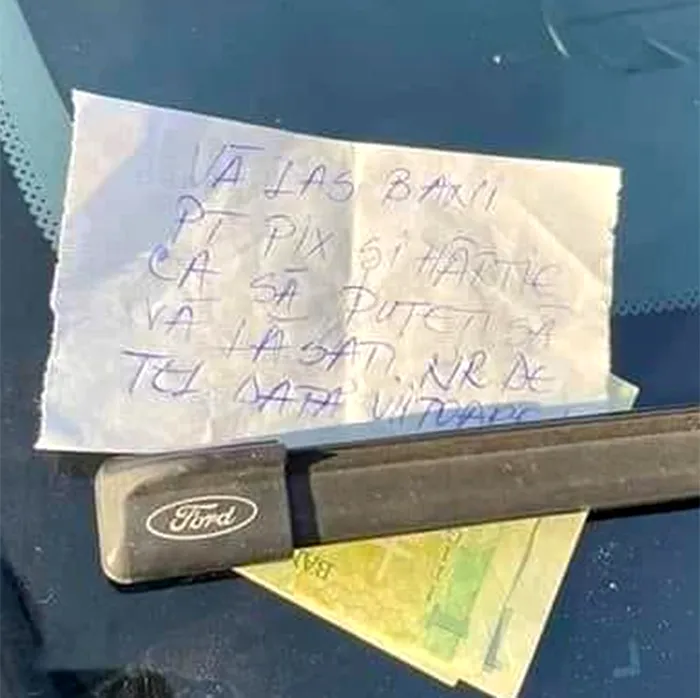 VĂ LAS BANI
PT PIX ȘI HÂRTIE
CA SĂ PUTEȚI SĂ
VĂ LĂSAȚI NR DE
TEL DATA VIITOARE !
Ford
BAN